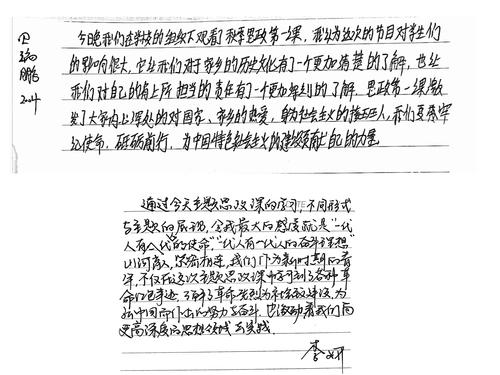 今晚我们在学校的组织下观看了秋季思政第一课，我认为这次的节目对学生们
的影响很大，它让我们对于家乡的历史文化有了一个更加清楚的了解，也让
我们对自己的肩上所担当的责任有了一个更加深刻的了解。思政第一课激
发了大家内心深处的对国家、家乡的热爱，身为社会主义的接班人，我们要牢
记使命，砥砺前行，为中国特色社会主义的建设贡献自己的力量。
通过今天主题思政课的学习，不同形式
与主题的展现，令我最大的感受就是“一代
人有一代的使命”，“一代人有一代人的奋斗”，理想
山河，我们作为新时期的青
年，不仅在这次主题思政课中学习到了各种革
命红色事迹，了解了革命先烈为社会主义建设，为
新中国而作出的努力与奋斗，也激励着我们向
更高深度的思想领域去发展。
李妍